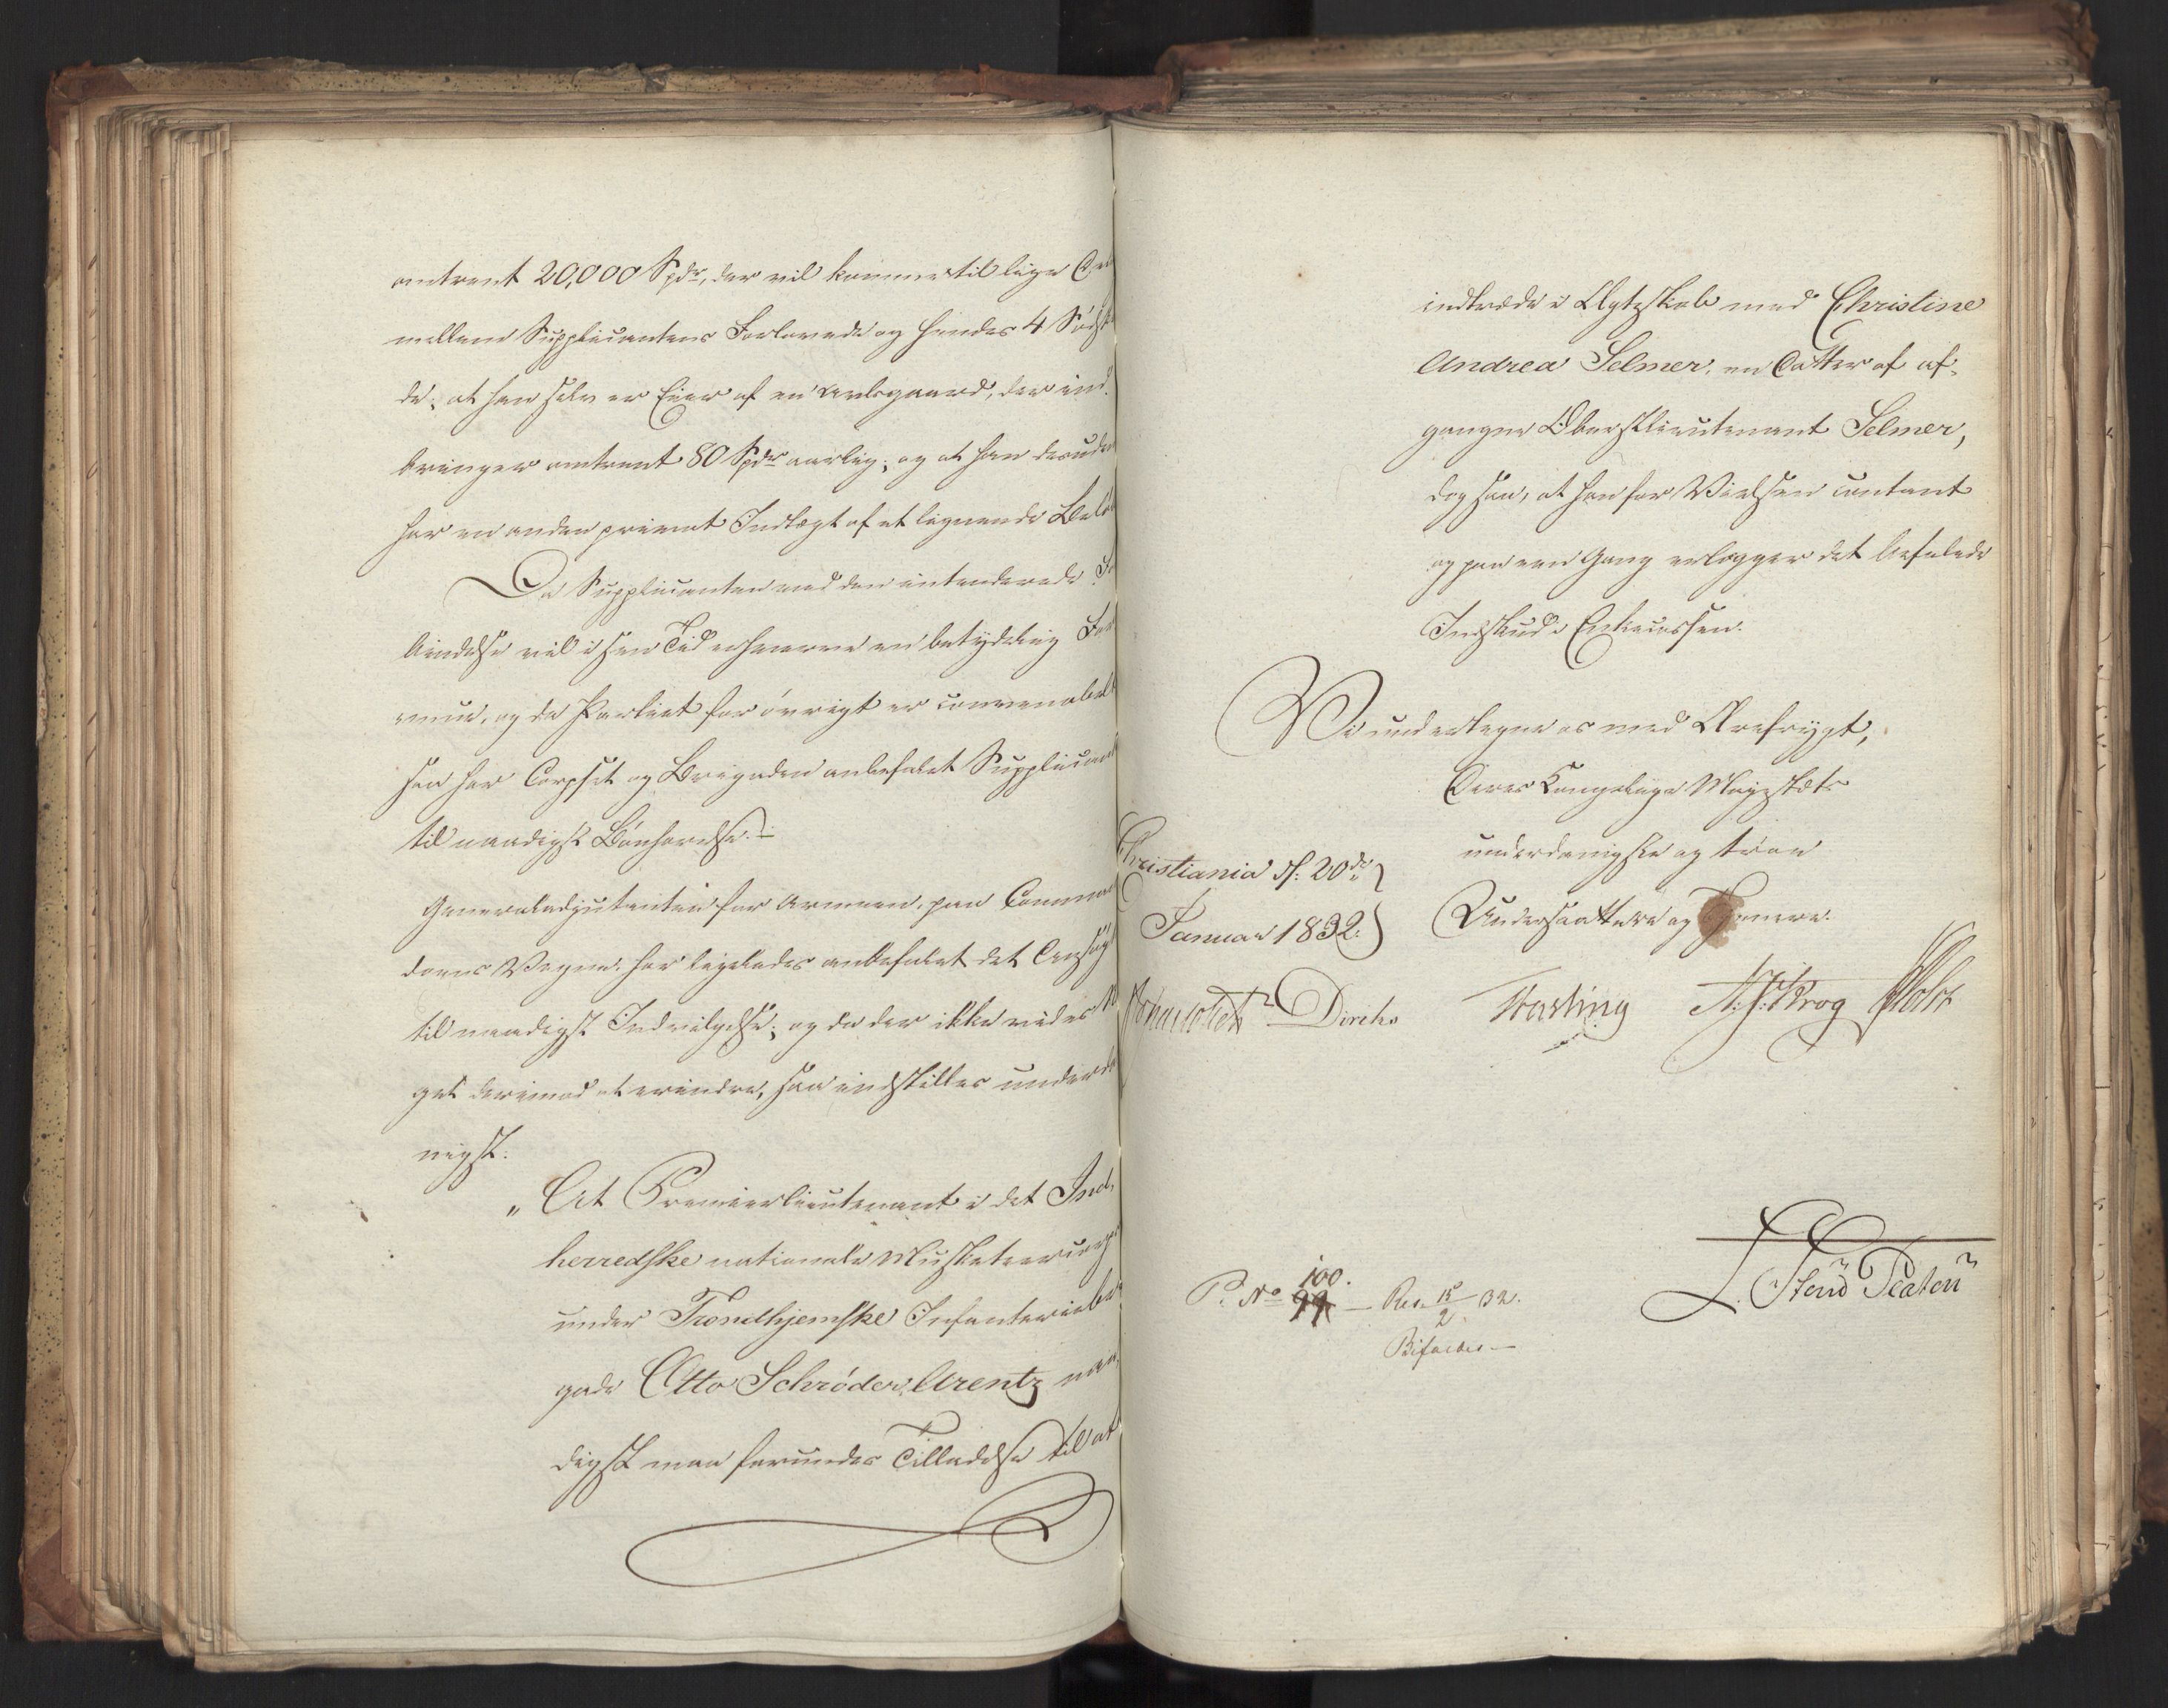 omtrent 20,000 Spdr, der vil komme til lige De
mellem Supplicantens Forlovede og hendes 4 Södsk
de; at han selv er Eier af en Avlsgaard, der ind¬
bringer omtrent 80 Spdr aarlig; og at han desuden
har en anden privat Indtægt af et lignende Belö
Da Supplicanten ved den intenderede For
bindelse vil i sin Tid erhverve en betydelig For
mue, og da Partiet for övrigt er convenabelt
saa har Corpset og Brigaden anbefalet Supplican
til naadigst Bönhörelse.
Generaladjutanten for Armeen, paa Comman
doens Vegne, har ligeledes anbefalet det Ansög
til naadigst Indvilgelse; og da der ikke vides No
get derimod at erindre, saa indstilles underda
nigst:
„At Premierlieutenant i det Ind¬
herredske nationale Musketeercorps
under Trondhjemske Infanteriebri
gade Otto Schröder Arentz naa¬
digst maa forundes Tilladelse til at
indtræde i Ægteskab med Christine
Andrea Selmer, en Datter af af¬
gangne Oberstlieutenant Selmer,
dog saa, at han for Vielsen contant
og paa een Gang erlægger det befalede
Indskud i Enkecassen.
Vi undertegne os med Ærefrygt,
Deres Kongelige Majestæts
underdanigste og troe
Undersaattere og Tjenere.
Christiania d. 20de
Januar 1832.
Diriks
Fasting
Krog
Holst
P. No 99 100. — Res. 15/2 32.
Bifaldes —